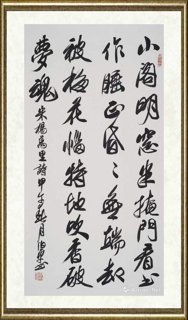 小閣明窓半掩門看书
作睡正昏々無端却
被梅花惱特地吹香破
夢魂 宋楊萬里詩甲午秋月